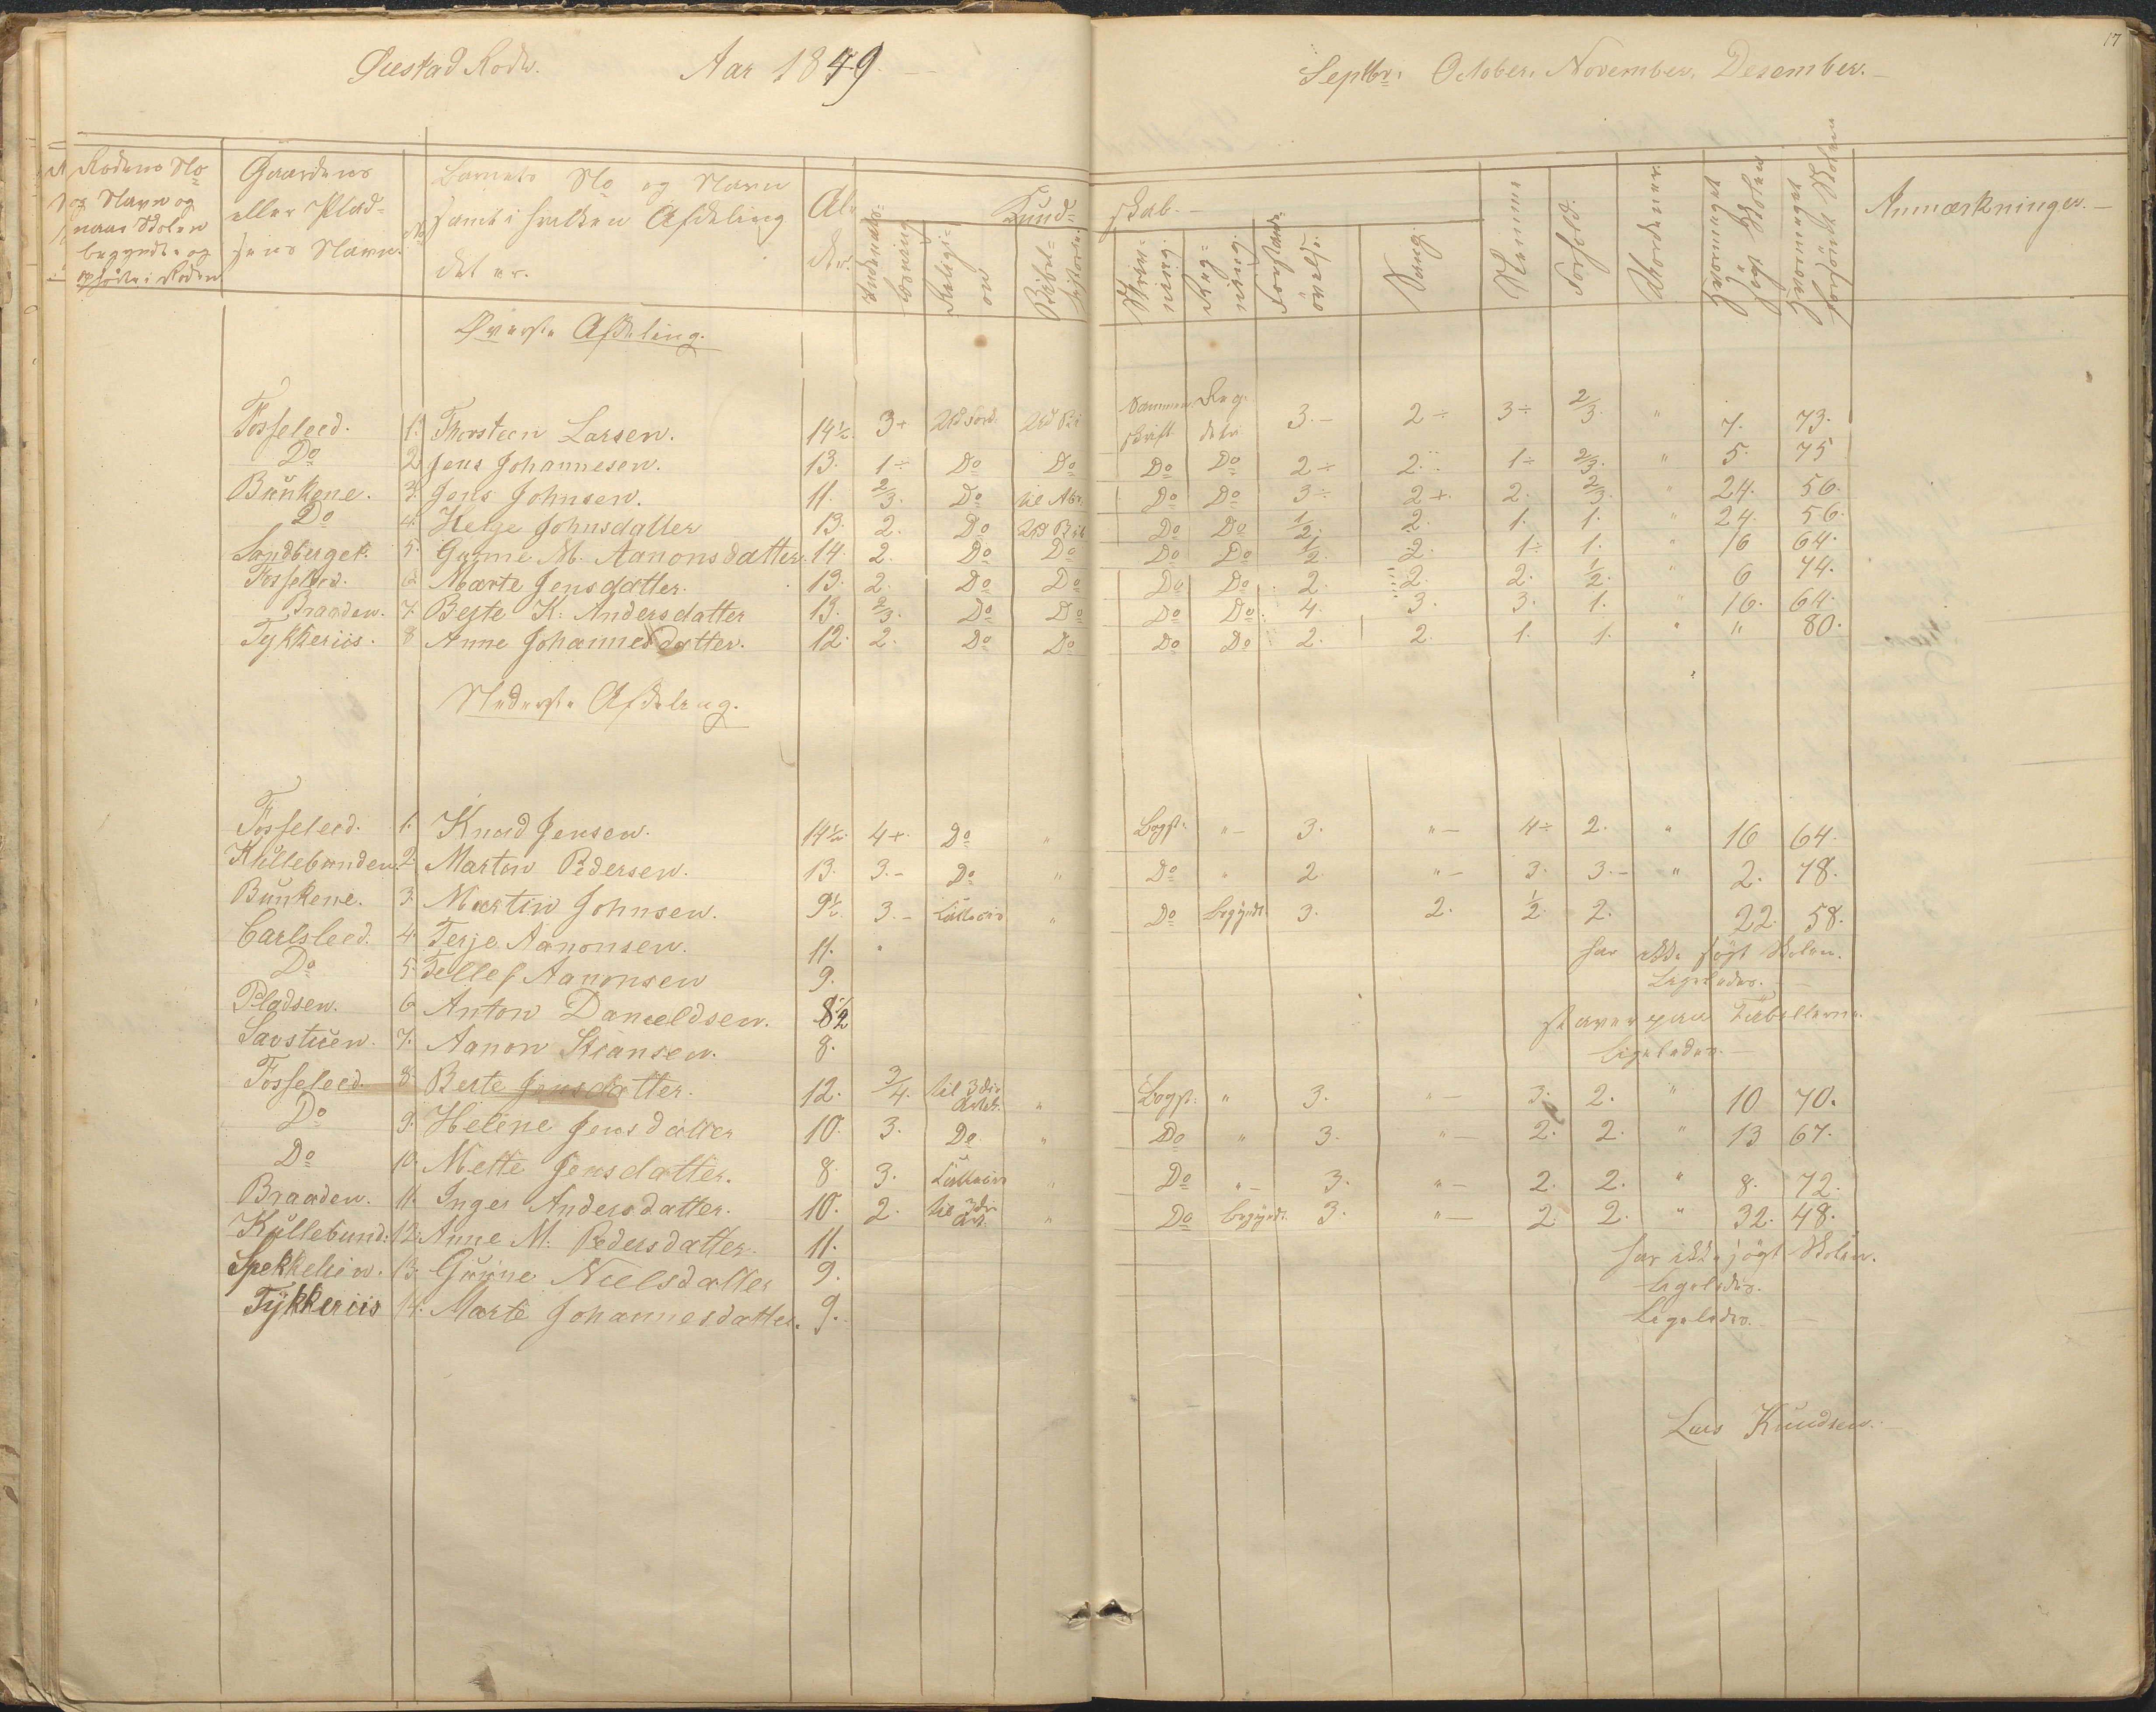 17
Øiestad Rode. Aar 1849.
Septbr: October, November, Desember.
Rodens No og Navn og naar Skolen begyndte og ophørte i Roden
Gaardens eller Pladsens Navn.
No
Barnets No og Navn samt i hvilken Afdeling det er.
Alder.
Kundskab.
Indenadslæsning
Religion
Bibelhistorie.
Skrivning.
Regning.
Forstandsøvelse.
Sang.
Nemme
Forhold.
Hvormeget søgt Skolen
Hvormeget forsømt Skolen
Anmærkninger.
Øverste Afdeling.
Fosseleed. 1. Thorsteen Larsen. 14½. 3+ Sammenskrift 3.- 2÷ 3÷ 2/3. " 7. 73.
Do 2 Jens Johannesen. 13. 1÷ Do Do Do Do 2÷ 2. 1÷ 2/3. " 5. 75
Bunkene. 3. Jens Johnsen. 11. 2/3. Do Do Do 3÷ 2+. 2. 2/3. " 24. 56.
Do 4. Helge Johnsdatter 13. 2. Do Do Do 1/2. 2. 1. 1. " 24. 56.
Sandberget. 5. Gunne M. Aanonsdatter. 14. 2. Do Do Do Do 1/2. 2. 1÷ 1. " 16 64.
Fosseleed. 6 Marte Jensdatter. 13. 2. Do Do Do Do 2. 2. 2. 1/2. " 6 74.
Braaden. 7. Berte K. Andersdatter 13. 2/3. Do Do Do Do 4. 3. 3. 1. " 16. 64.
Tykkeriis. 8 Anne Johannesdatter. 12. 2. Do Do Do Do 2. 2. 1. 1. " " 80.
Nederste Afdeling.
Fosseleed. 1. Knud Jensen. 14½. 4+. Do " Bogst: "- 3. "- 4÷ 2. " 16 64.
Kullebunden. 2. Marten Pedersen. 13. 3.- Do " Do " 2. "- 3. 3.- " 2. 78.
Bunkene. 3. Martin Johnsen. 9½. 3.- " Do begyndt 3. 2. 1/2. 2. 22. 58.
Carlsleed. 4. Terje Aanonsen. 11. har ikke søgt Skolen.
Do 5. Tellef Aanonsen 9. Ligeledes.
Pladsen. 6 Anton Danieldsen. 8½ staver paa Tabellerne.
Savstuen. 7. Aanon Stiansen. 8. Ligeledes.
Fosseleed. 8 Berte Jensdatter. 12. 3/4. til 3die Artik. " Bogst: " 3. "- 3. 2. " 10 70.
Do 9. Helene Jensdatter 10. 3. Do " Do " 3. "- 2. 2. " 13 67.
Do 10. Mette Jensdatter. 8. 3. " Do "- 3. "- 2. 2. " 8. 72.
Braaden. 11. Inger Andersdatter. 10. 2. til 3die Art. " Do begyndt. 3. "- 2. 2. " 32. 48.
Kullebund: 12. Anne M. Pedersdatter. 11. har ikke søgt Skolen.
Spekkelien. 13. Gunne Nielsdatter 9. Ligeledes.
Tykkeriis 14. Marte Johannesdatter. 9. Ligeledes.
Lars Knudsen.